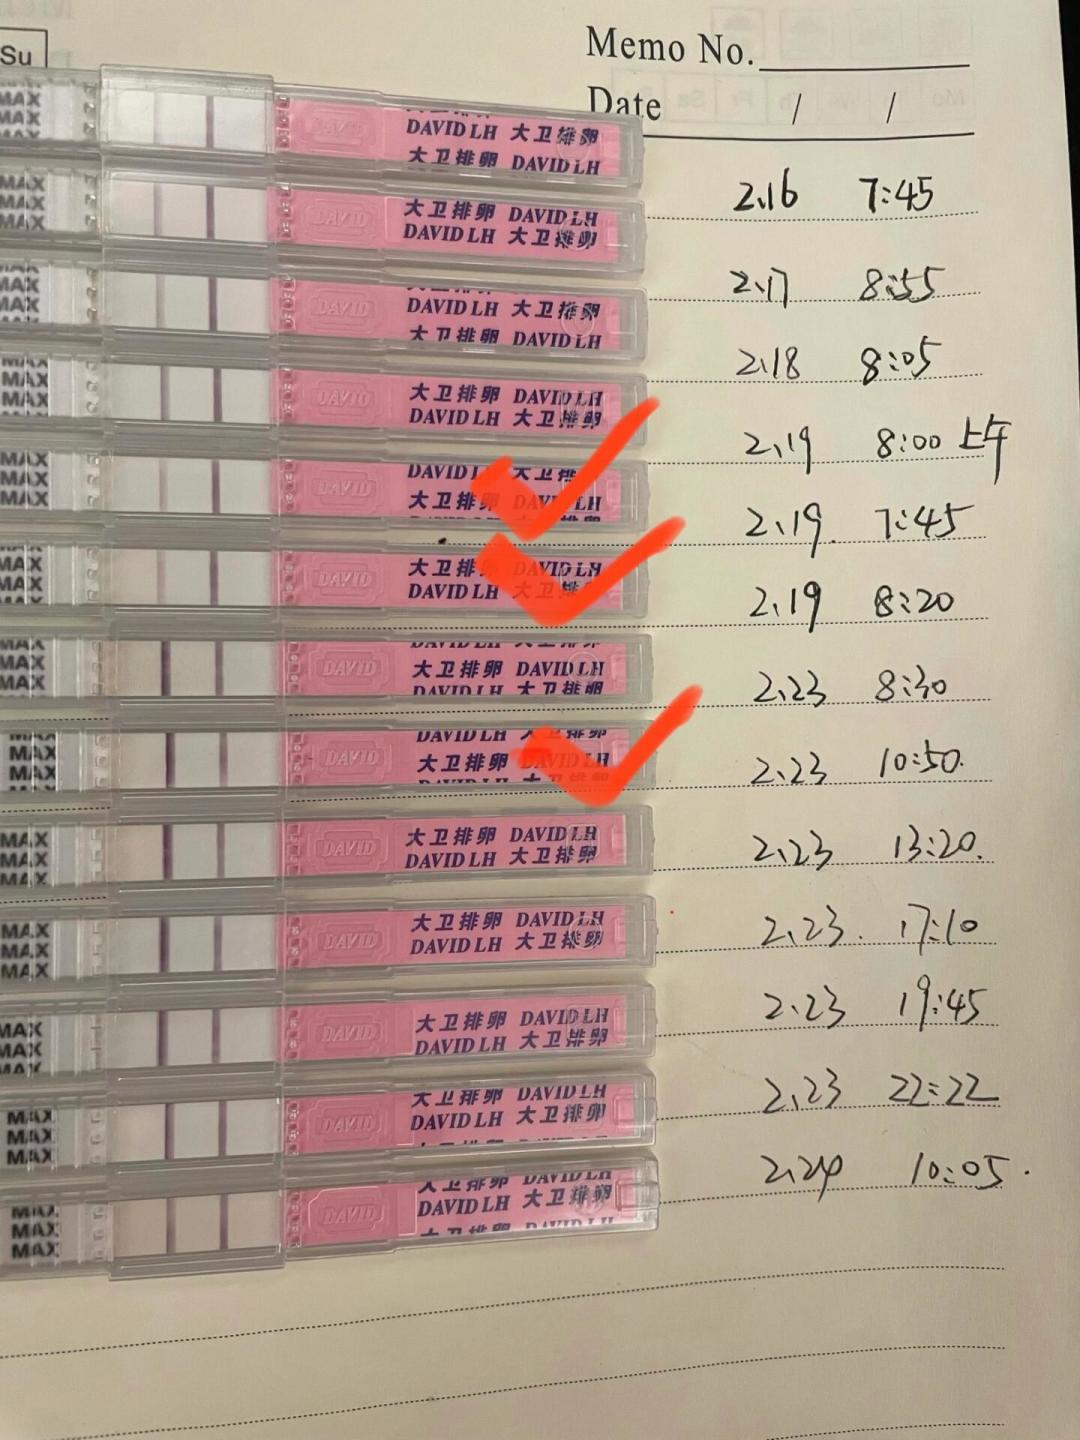 Su
Memo No.
Date / /
MAX
MAX
MAX
DAVID
DAVID LH 大卫排卵
大卫排卵 DAVID LH
2.16 7:45
MAX
MAX
MAX
DAVID
大卫排卵 DAVID LH
DAVID LH 大卫排卵
2.17 8:55
MAX
MAX
DAVID
DAVID LH 大卫排卵
大卫排卵 DAVID LH
2.18 8:05
MAX
MAX
MAX
DAVID
大卫排卵 DAVID LH
DAVID LH 大卫排卵
2.19 8:00 上午
MAX
MAX
MAX
DAVID
大卫排卵 DAVID LH
2.19. 7:45
MAX
MAX
DAVID
大卫排卵 DAVID LH
DAVID LH 大卫排卵
2.19 8:20
MAX
MAX
MAX
DAVID
大卫排卵 DAVID LH
DAVID LH 大卫排卵
2.23 8:30
MAX
MAX
MAX
MAX
DAVID
DAVID LH 大卫排卵
大卫排卵 DAVID LH
2.23 10:50.
MAX
MAX
MAX
DAVID
大卫排卵 DAVID LH
DAVID LH 大卫排卵
2.23 13:20.
MAX
MAX
MAX
DAVID
大卫排卵 DAVID LH
DAVID LH 大卫排卵
2.23. 17:10
MAX
MAX
MAX
DAVID
大卫排卵 DAVID LH
DAVID LH 大卫排卵
2.23 19:45
MAX
MAX
MAX
DAVID
大卫排卵 DAVID LH
DAVID LH 大卫排卵
2.23 22:22
MAX
MAX
MAX
DAVID
大卫排卵 DAVID LH
DAVID LH 大卫排卵
2.24 10:05.